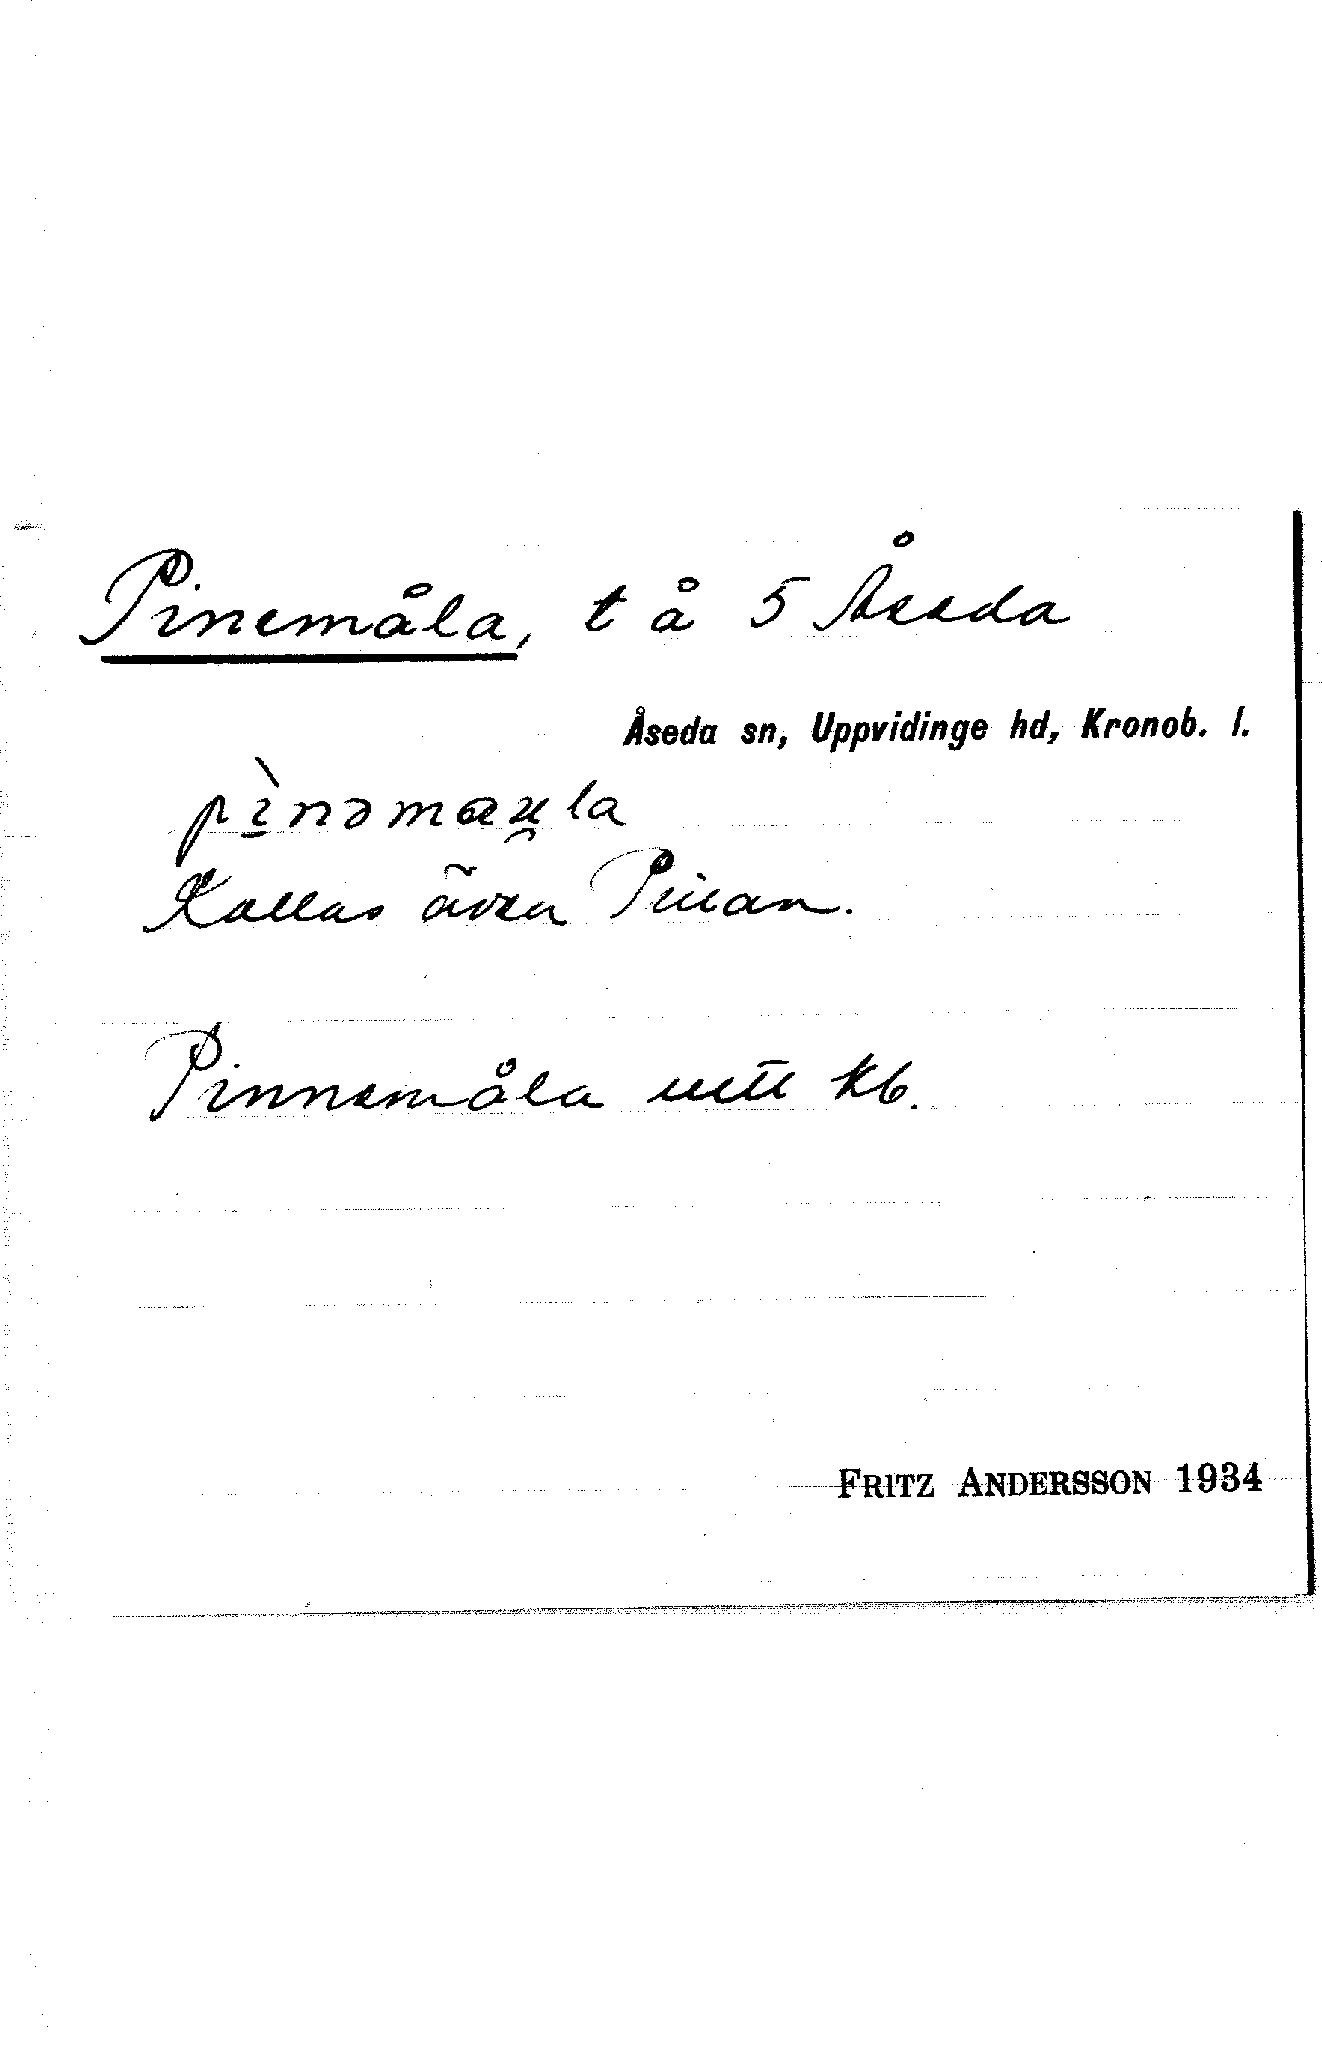 Pinemåla, t å 5 Åseda
Åseda sn, Uppvidinge hd, Kronob. l.
pìnəmau̯la
Kallas även Pinan.
Pinnemåla utt kb.
FRITZ ANDERSSON 1934